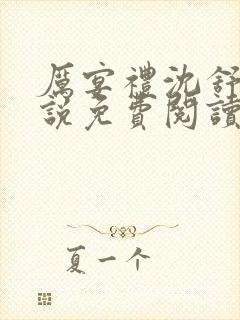 厲宴禮沈舒
說免費閱讀
夏一个